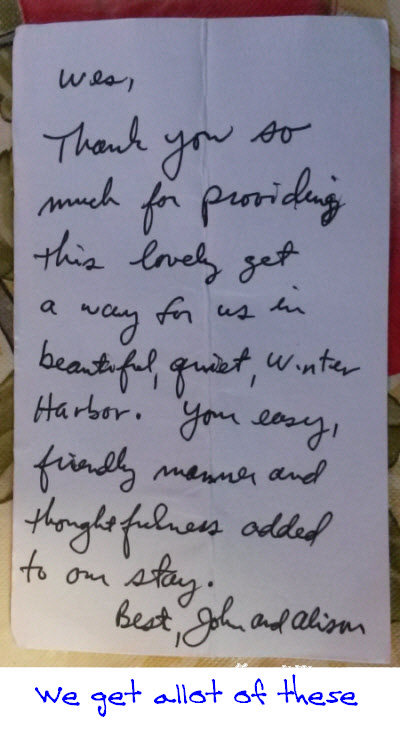 Wes,
Thank you so
much for providing
this lovely get
a way for us in
beautiful, quiet, Winter
Harbor. Your easy,
friendly manner and
thoughtfulness added
to our stay.
Best, John and Alison
We get allot of these